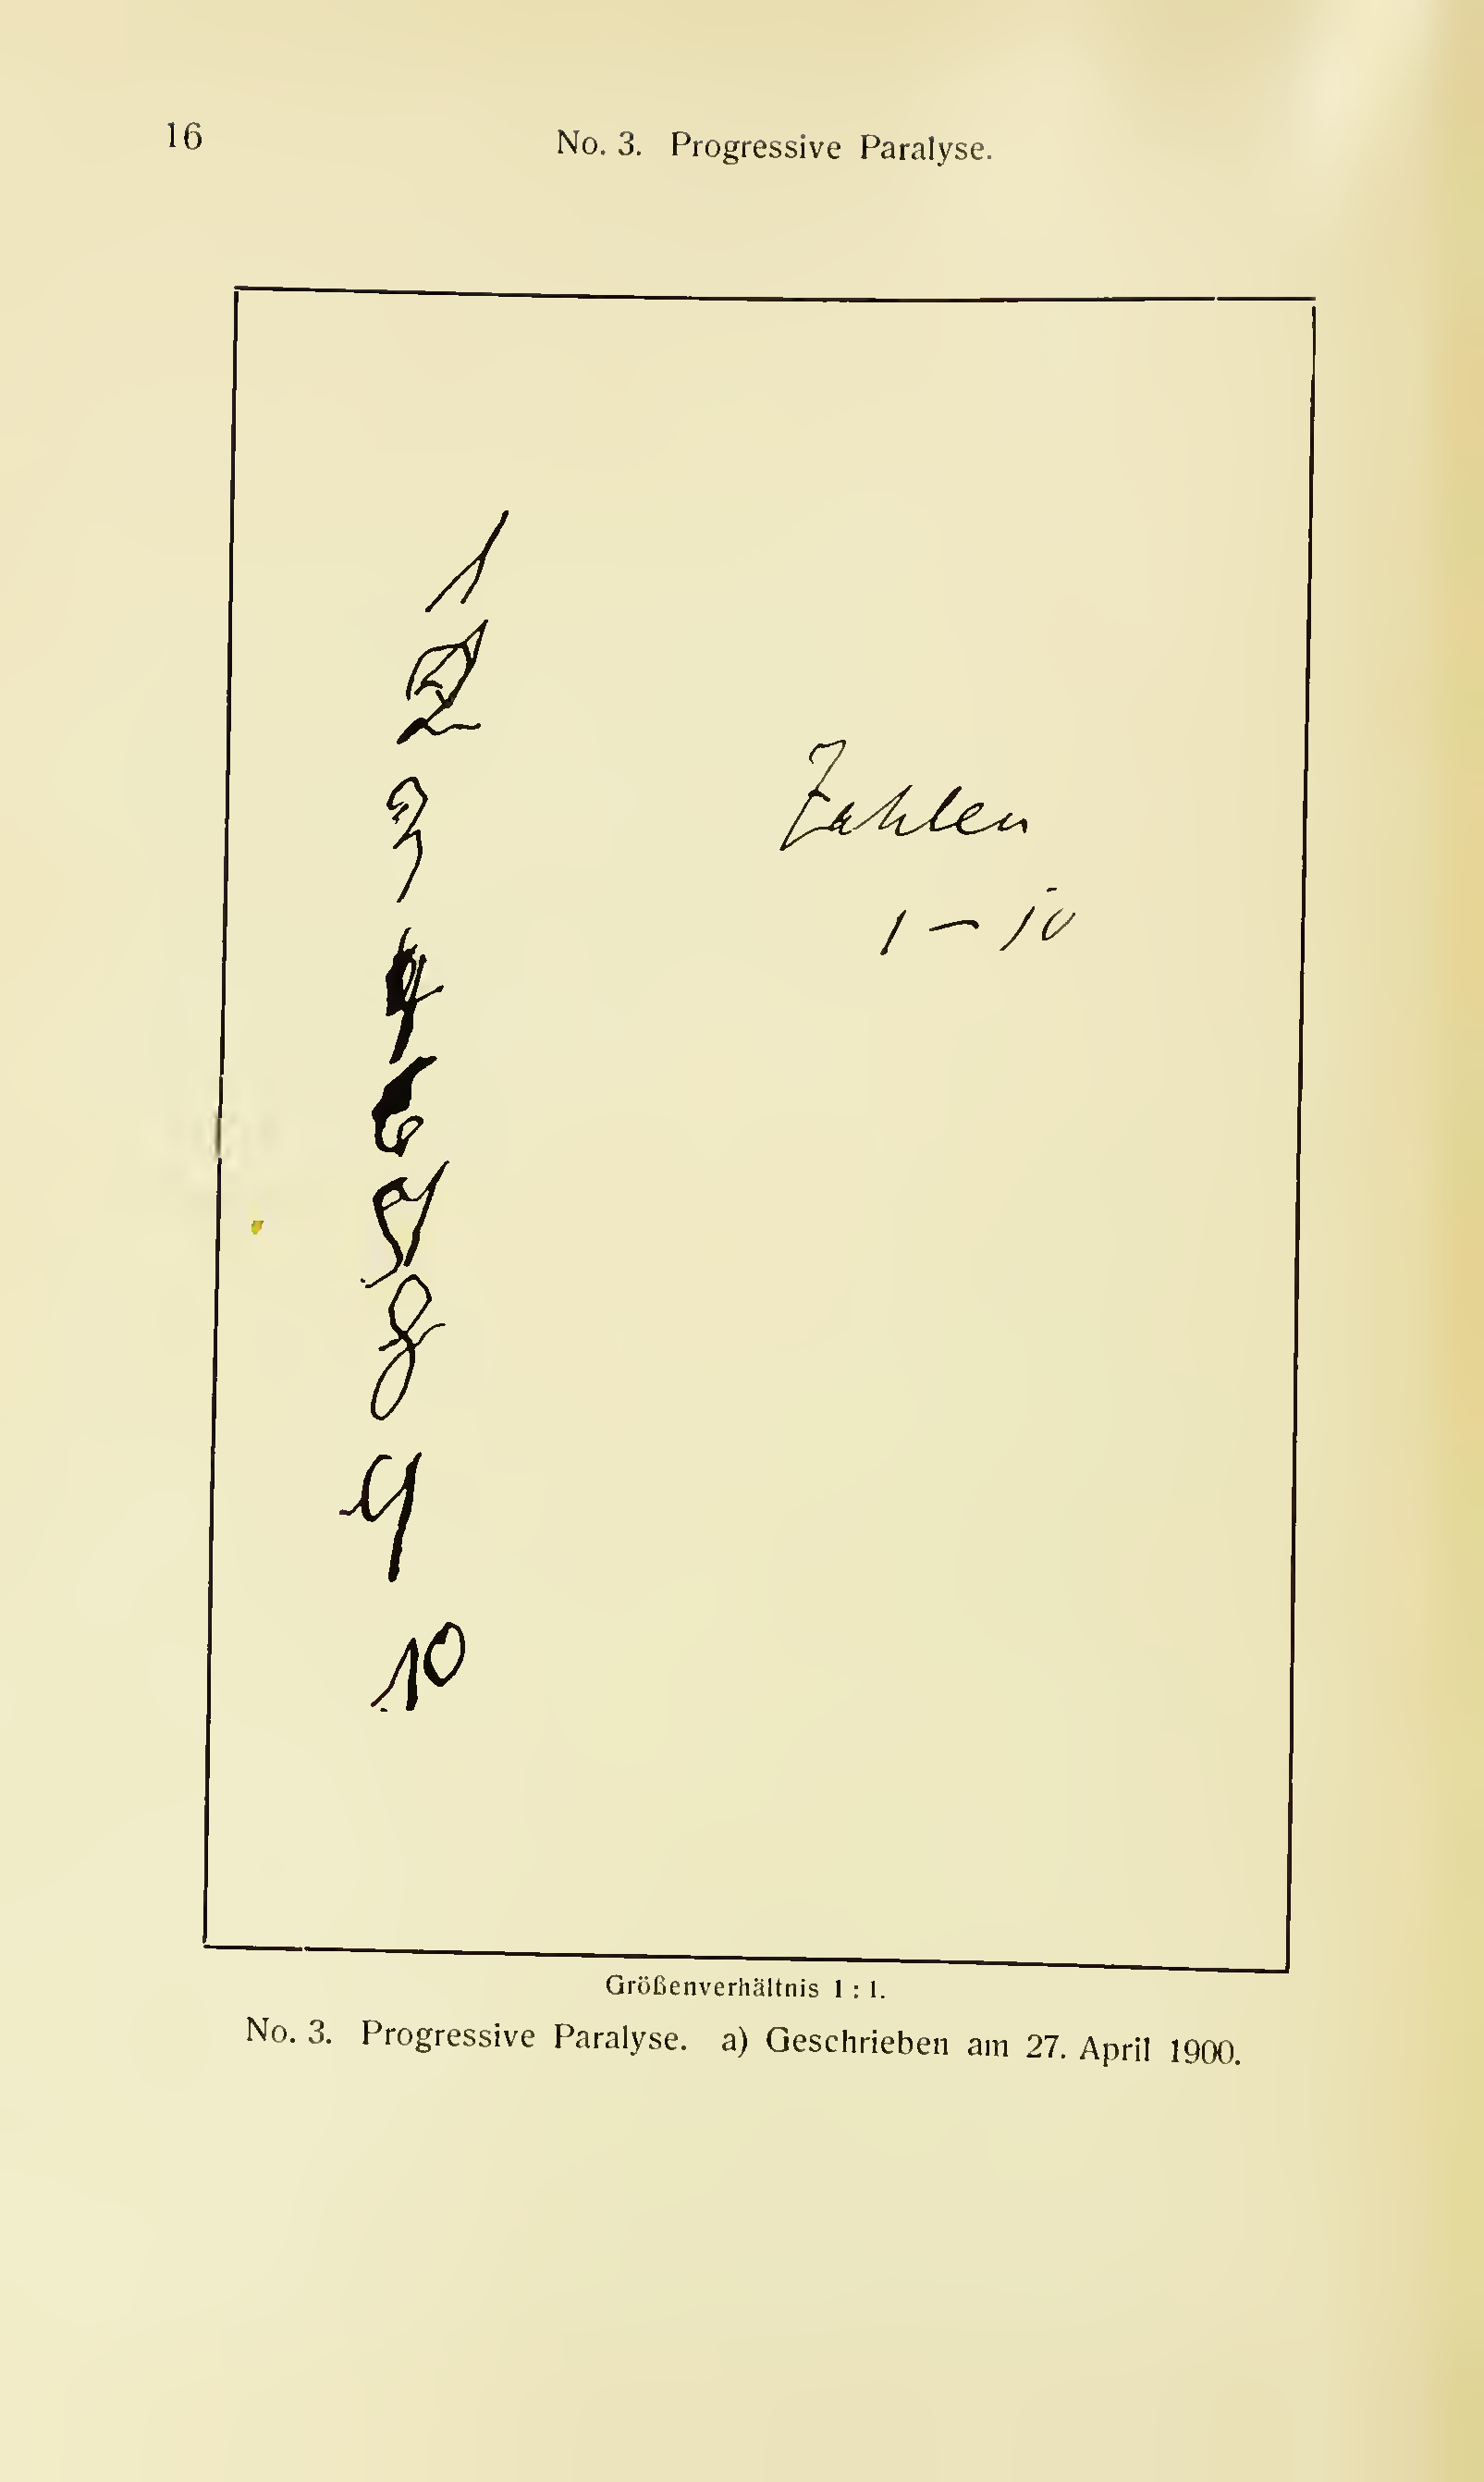 16
No. 3. Progressive Paralyse.
1
2
3
4
6
8
9
10
Zahlen
1 – 10
Größenverhältnis 1 : 1.
No. 3. Progressive Paralyse. a) Geschrieben am 27. April 1900.